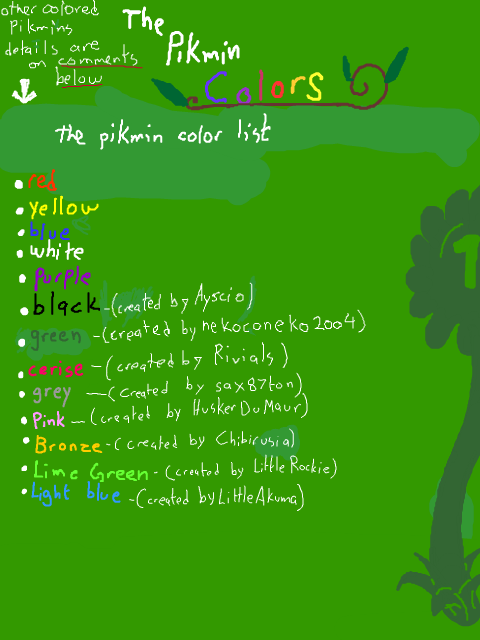 other colored
Pikmins
details are
on comments
below
The
Pikmin
Colors
The pikmin color list
red
yellow
blue
white
purple
black-(created by Ayscio)
green-(created by nekoconeko2004)
cerise-(created by Rivials)
grey-(created by sax87ton)
Pink-(created by HuskerDuMaur)
Bronze-(created by Chibirusia)
Lime Green-(created by Little Rockie)
Light blue-(created by LittleAkuma)